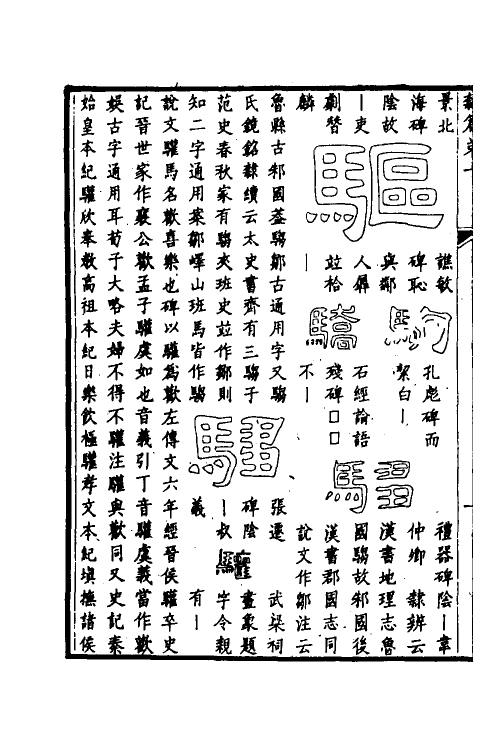 隸篇弟十
驅
景北
海碑
陰故
丨吏
劇朁
麟
驅
譙敏
碑恥
與鄰
人羼
竝枱
丨
駒
孔彪碑而
絜白丨
驕
石經論語
殘碑□□
不丨
騶
禮器碑陰丨韋
仲卿 隸辨云
漢書地理志魯
國騶故邾國後
漢書郡國志同
說文作鄒注云
魯縣古邾國蓋騶鄒古通用字又騶
氏鏡銘隸續云太史書齊有三騶子
范史春秋家有騶夾班史竝作鄒則
知二字通用案鄒嶧山班馬皆作騶
騶
張遷
碑陰
丨叔
義
驩
武梁祠
畫象題
字令親
有丨
說文驩馬名歡喜樂也碑以驩為歡左傳文六年經晉侯驩卒史
記晉世家作襄公歡孟子驩虞如也音義引丁音驩虞義當作歡
娛古字通用耳荀子大略夫婦不得不驩注驩與歡同又史記秦
始皇本紀驩欣奉敎高祖本紀日樂飲極驩孝文本紀塡撫諸侯